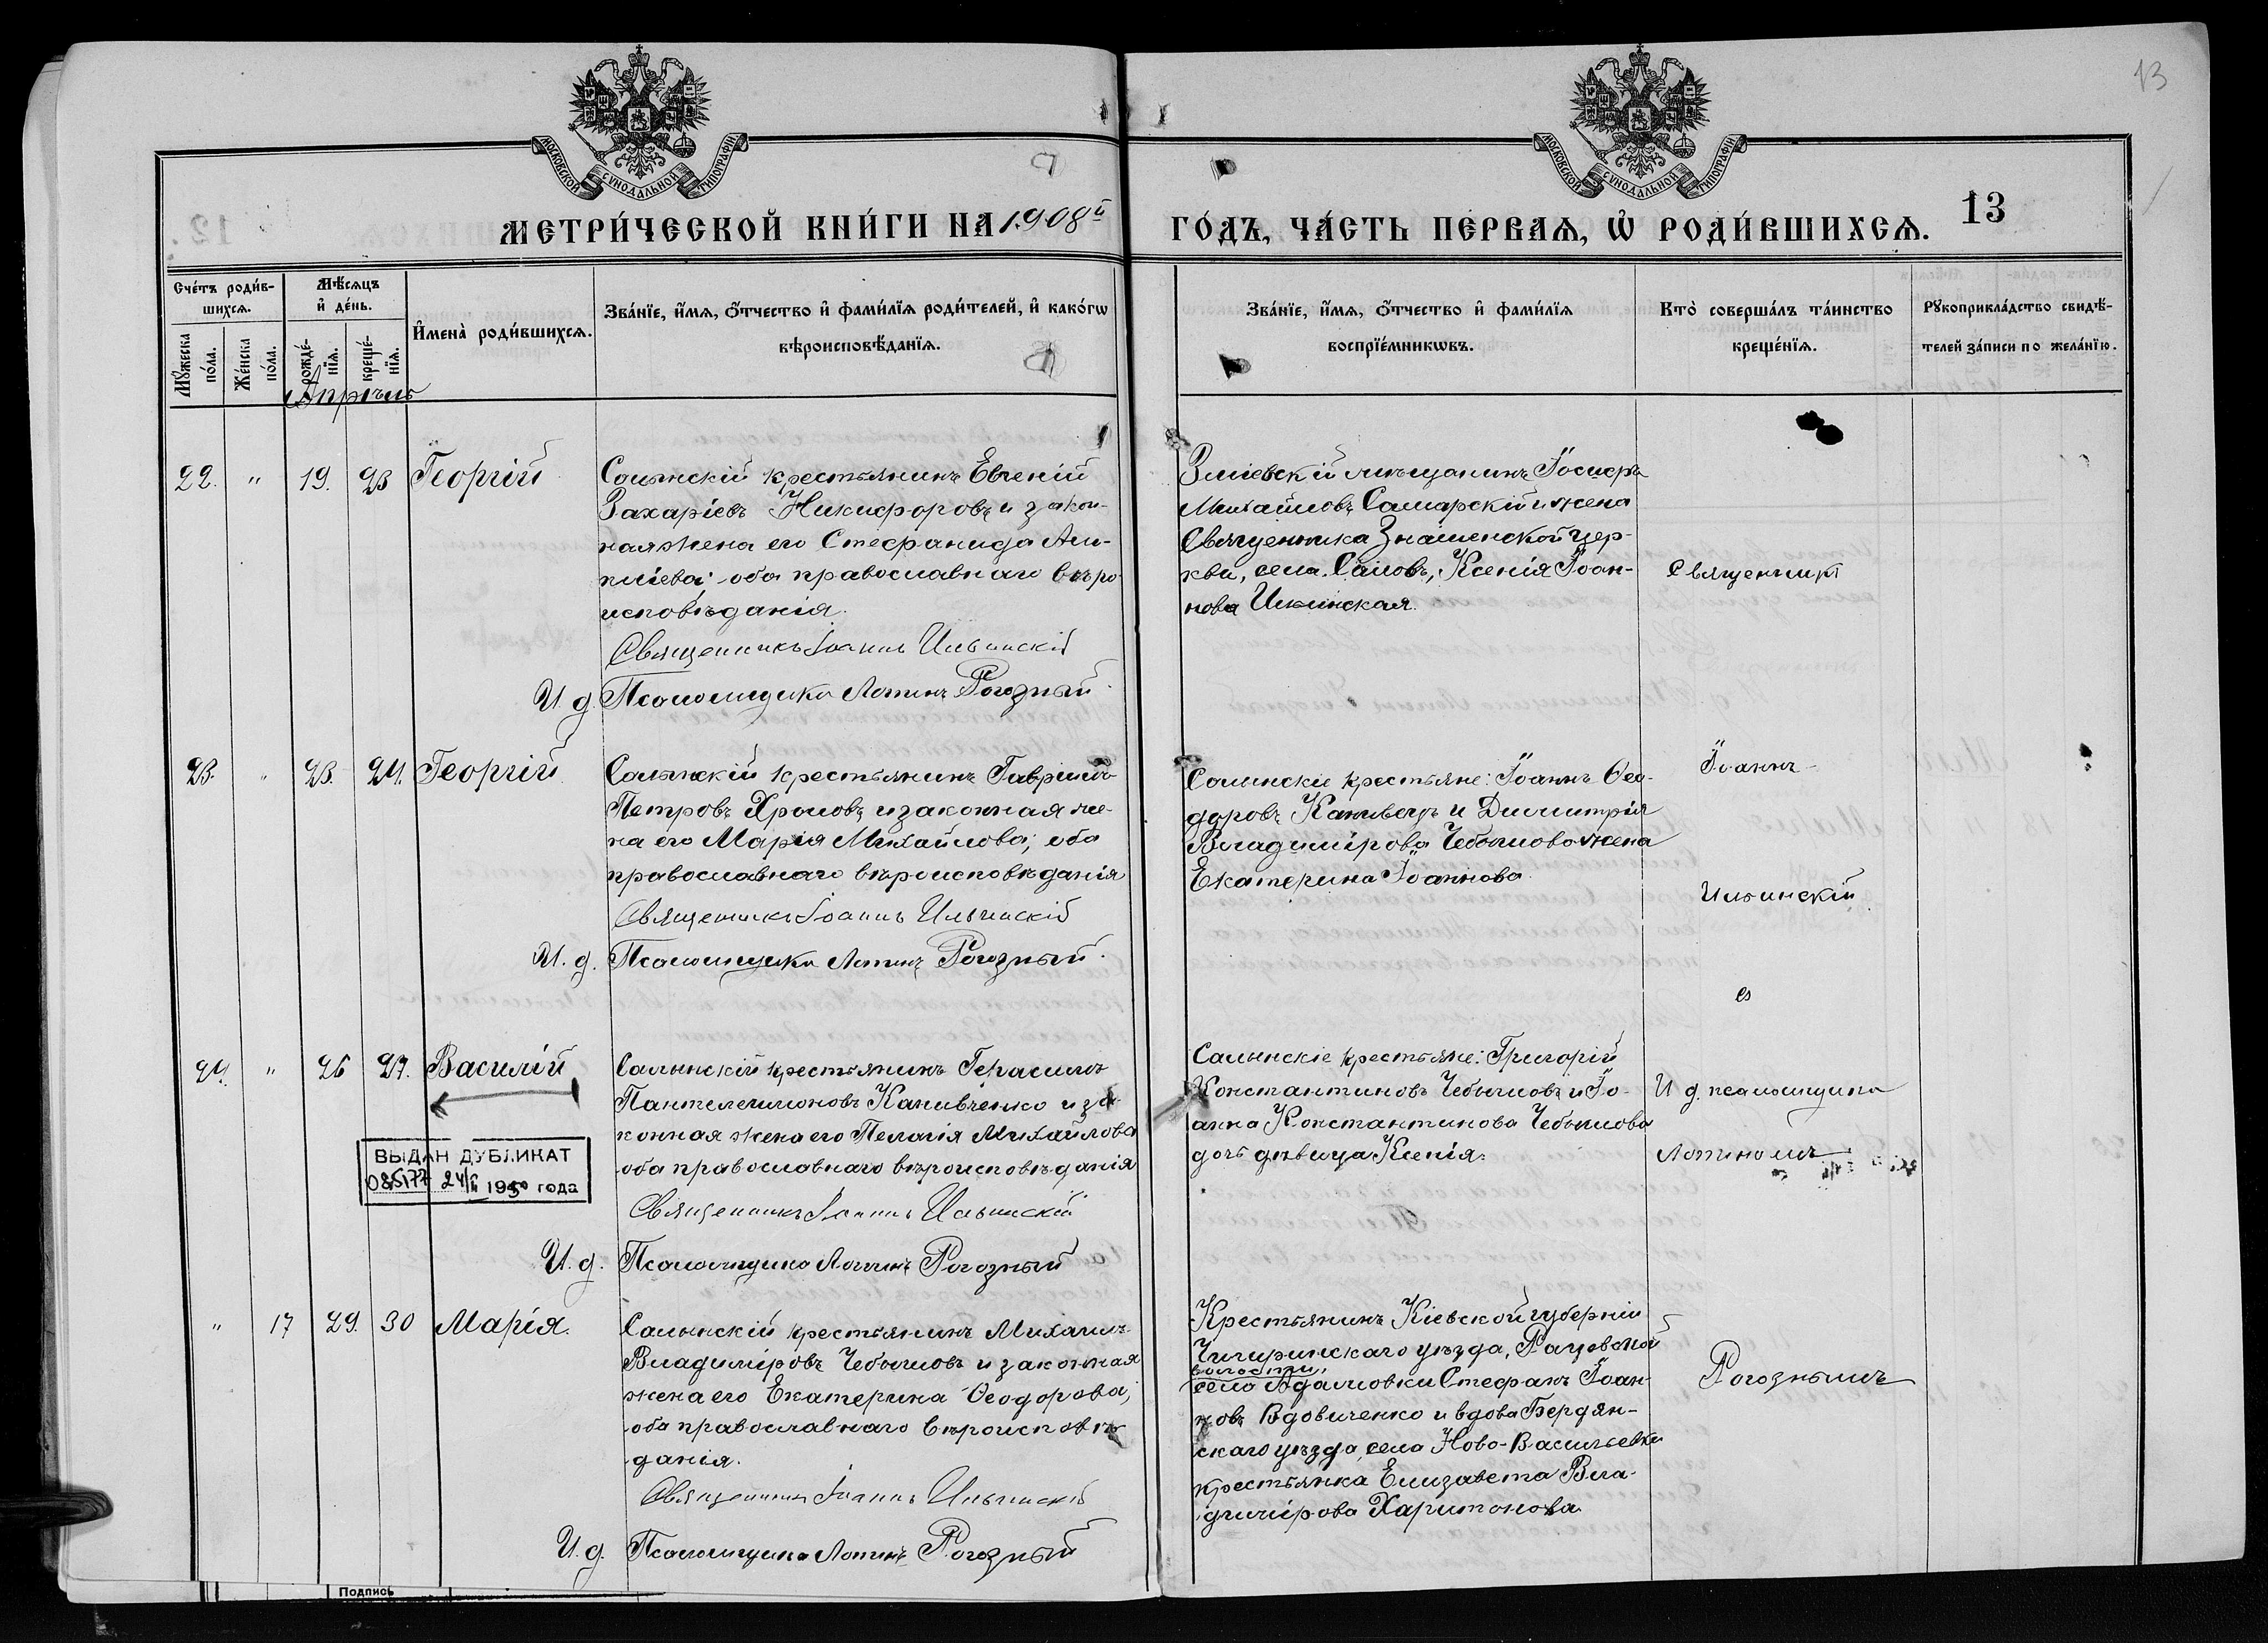 13
МОСКОВСКОЙ СѴНОДАЛЬНОЙ ТИПОГРАФІИ
МОСКОВСКОЙ СѴНОДАЛЬНОЙ ТИПОГРАФІИ
МЕТРИ́ЧЕСКОЙ КНИ́ГИ НА 1908й ГО́ДЪ, ЧА́СТЬ ПЕ́РВАѦ, Ѡ҆ РОДИ́ВШИХСѦ. 13
Сче́тъ роди́в-
шихсѧ.
Мꙋ́жеска по́ла.
Же́нска по́ла.
Мѣ́сѧцъ
и҆ де́нь.
рожде́-нїѧ.
креще́-нїѧ.
И҆мена̀ роди́вшихсѧ.
Зва́нїе, и҆́мѧ, ѻ҆́тчество и҆ фами́лїѧ роди́телей, и҆ како́гѡ
вѣроисповѣ́данїѧ.
Зва́нїе, и҆́мѧ, ѻ҆́тчество и҆ фами́лїѧ
воспрїе́мникѡвъ.
Кто̀ соверша́лъ та́инство
креще́нїѧ.
Рꙋкоприкла́дство свидѣ́-
телей за́писи по жела́нїю.
Апрѣль
22. " 19. 23 Георгій
Солынскій крестьянинъ Евгеній
Захаріевъ Никифоровъ и закон-
ная жена его Стефанида Али-
піева; оба православнаго вѣро-
исповѣданія.
Священникъ Іоаннъ Ильинскій
И. д. Псаломщика Логинъ Рогозный
Зміевскій мѣщанинъ Іосифъ
Михайловъ Самарскій и жена
Священника Знаменской цер-
кви, села, Ксенія Іоан-
нова Ильинская.
Священникъ
23. " 23. 24. Георгій
Солынскій крестьянинъ Гавріилъ
Петровъ Хромовъ и законная же-
на его Марія Михайлова; оба
православнаго вѣроисповѣданія
Священникъ Іоаннъ Ильинскій
И. д. Псаломщика Логинъ Рогозный
Солынскіе крестьяне: Іоаннъ Ѳео-
доровъ Канивецъ и Димитрія
Владимірова Чебышова жена
Екатерина Іоаннова
Іоаннъ
Ильинскій
съ
24. " 26 27. Василій
Солынскій крестьянинъ Герасимъ
Пантелеимоновъ Канивченко и за-
конная жена его Пелагія Михайлова
оба православнаго вѣроисповѣданія
Священникъ Іоаннъ Ильинскій
И. д. Псаломщика Логинъ Рогозный
ВЫДАН ДУБЛИКАТ
085177 24/ 1950 года
Солынскіе крестьяне: Григорій
Константиновъ Чебышовъ и Іо-
анна Константинова Чебышова
дочь дѣвица Ксенія.
И д. псаломщика
Логиномъ
" 17 29. 30 Марія.
Солынскій крестьянинъ Михаилъ
Владиміровъ Чебышовъ и законная
жена его Екатерина Ѳеодорова;
оба православнаго вѣроисповѣ-
данія.
Священникъ Іоаннъ Ильинскій
И. д. Псаломщика Логинъ Рогозный
Крестьянинъ Кіевской губерніи
Чигиринскаго уѣзда, Рацевской
волости,
села Адамовки Стефанъ Іоан-
новъ Вдовиченко и вдова Бердян-
скаго уѣзда, села Ново-Васильевки
крестьянка Елизавета Вла-
димірова Харитонова.
Рогознымъ
Подпись